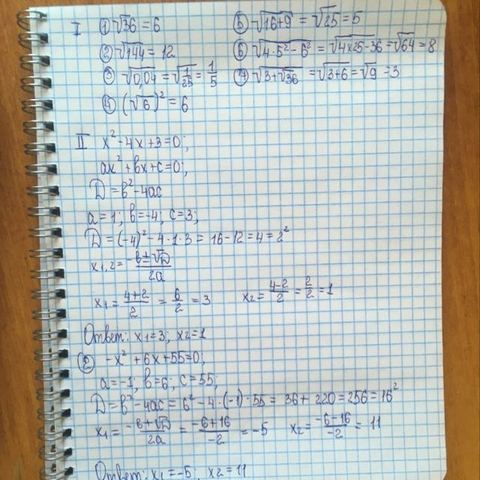 I ① √36 = 6 ⑤ √16+9 = √25 = 5
② √144 = 12 ⑥ √4·5²-6² = √4×25-36 = √64 = 8
③ √0,04 = √1/25 = 1/5 ⑦ √3+√36 = √3+6 = √9 = 3
④ (√6)² = 6
II x²-4x+3=0;
ax²+bx+c=0;
D=b²-4ac
a=1; b=-4; c=3;
D=(-4)²-4·1·3=16-12=4=2²
x1,2=-b±√D/2a
x1=4+2/2=6/2=3 x2=4-2/2=2/2=1
Ответ: x1=3; x2=1
② -x²+6x+55=0;
a=-1, b=6, c=55,
D=b²-4ac=6²-4·(-1)·55=36+220=256=16²
x1=-b+√D/2a=-6+16/-2=-5 x2=-6-16/-2=11
Ответ: x1=-5, x2=11